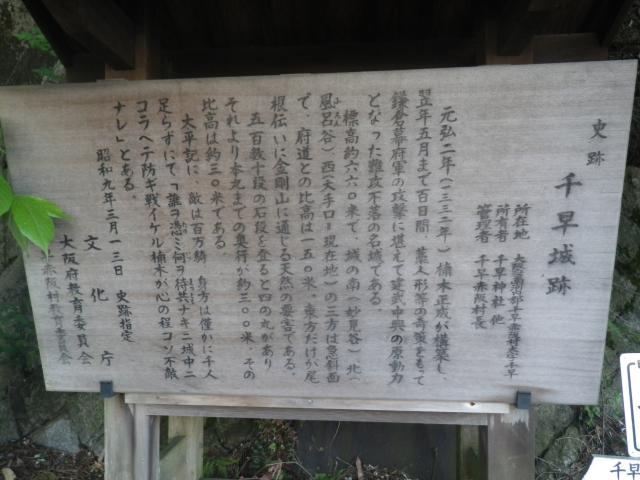 史跡 千早城跡
所在地 大阪府南河内郡千早赤阪村大字千早
所有者 千早神社 他
管理者 千早赤阪村長
元弘二年(一三三二年)楠木正成が構築し、
翌年五月まで百日間、藁人形等の奇策をもって
鎌倉幕府軍の攻撃に堪えて建武中興の原動力
となった難攻不落の名城である。
標高約六六〇米で、城の南(妙見谷)北(
風呂谷)西(大手口=現在地)の三方は急斜面
で、府道との比高は一五〇米。東方だけが尾
根伝いに金剛山に通じる天然の要害である。
五百数十段の石段を登ると四の丸があり
それより本丸までの奥行が約三〇〇米、その
比高は約三〇米である。
太平記に、敵は百万騎 身方は僅かに千人
足らずにて「誰ヲ憑ミ何ヲ待共ナキニ城中ニ
コラヘテ防ギ戦イケル楠木が心の程コソ不敵
ナレ」とある。
昭和九年三月一三日 史跡指定
文化庁
大阪府教育委員会
千早赤阪村教育委員会
千早